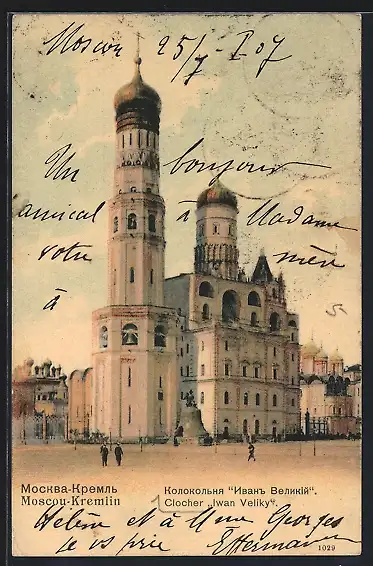 Moscou 25/7 07
Un bonjour
amical à Madame
votre mère
à
Москва-Кремль
Moscou-Kremlin
Колокольня "Иванъ Великій".
Clocher „Iwan Veliky“.
Hélène et à Une Georges
je vs prie
1029